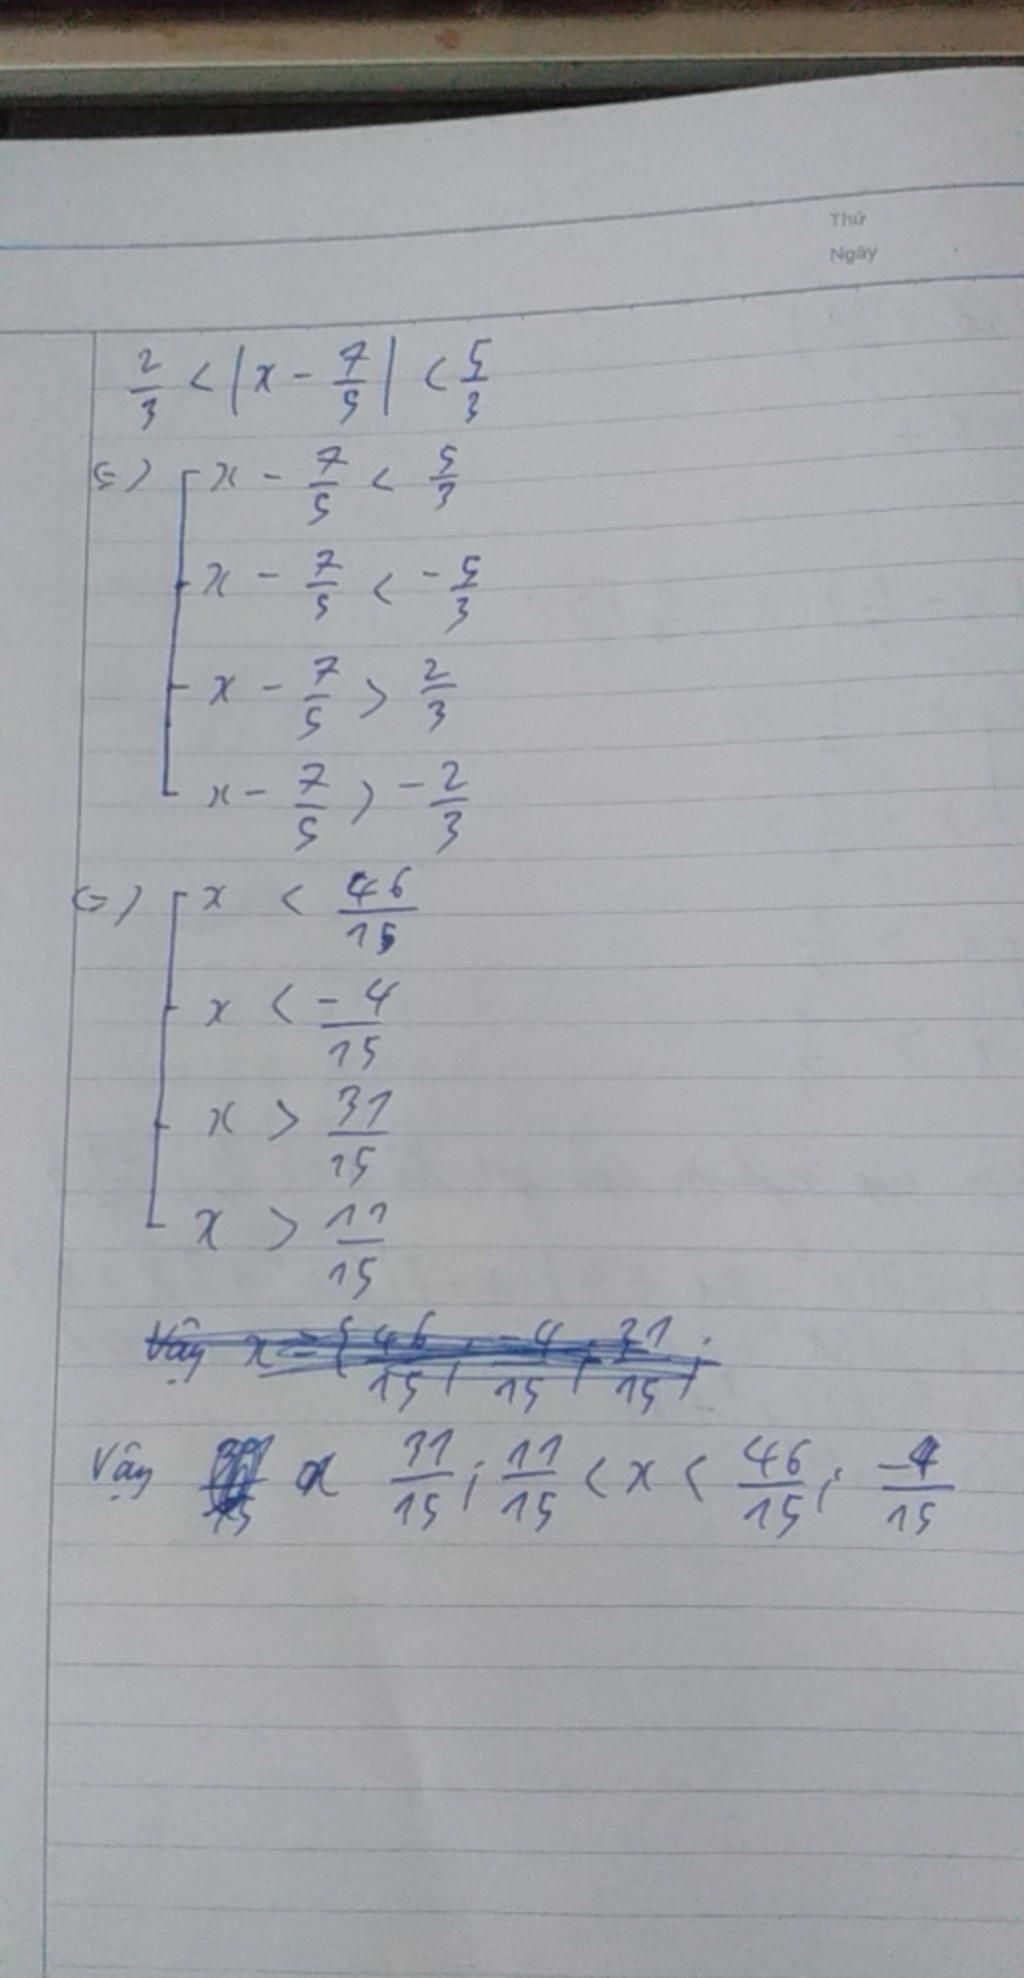 Thứ
Ngày
2/3 < |x - 7/5| < 5/3
(=) [ x - 7/5 < 5/3
x - 7/5 < -5/3
x - 7/5 > 2/3
x - 7/5 > -2/3
(=) [ x < 46/15
x < -4/15
x > 31/15
x > 11/15
Vậy x = { 46/15 ; -4/15 ; 31/15 ;
Vậy x 31/15 ; 11/15 < x < 46/15 ; -4/15